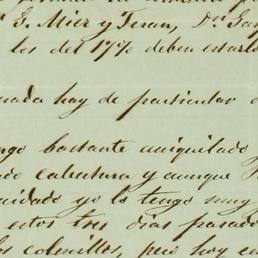 G. Mier y Teran, Dr. Gar
los del 17% deben estarlo
nada hay de particular
ngo bastante aniquilado
ado calentura y aunque
cuidado yo lo tengo muy
estos tres dias pasado
los colmillos, pero hoy en